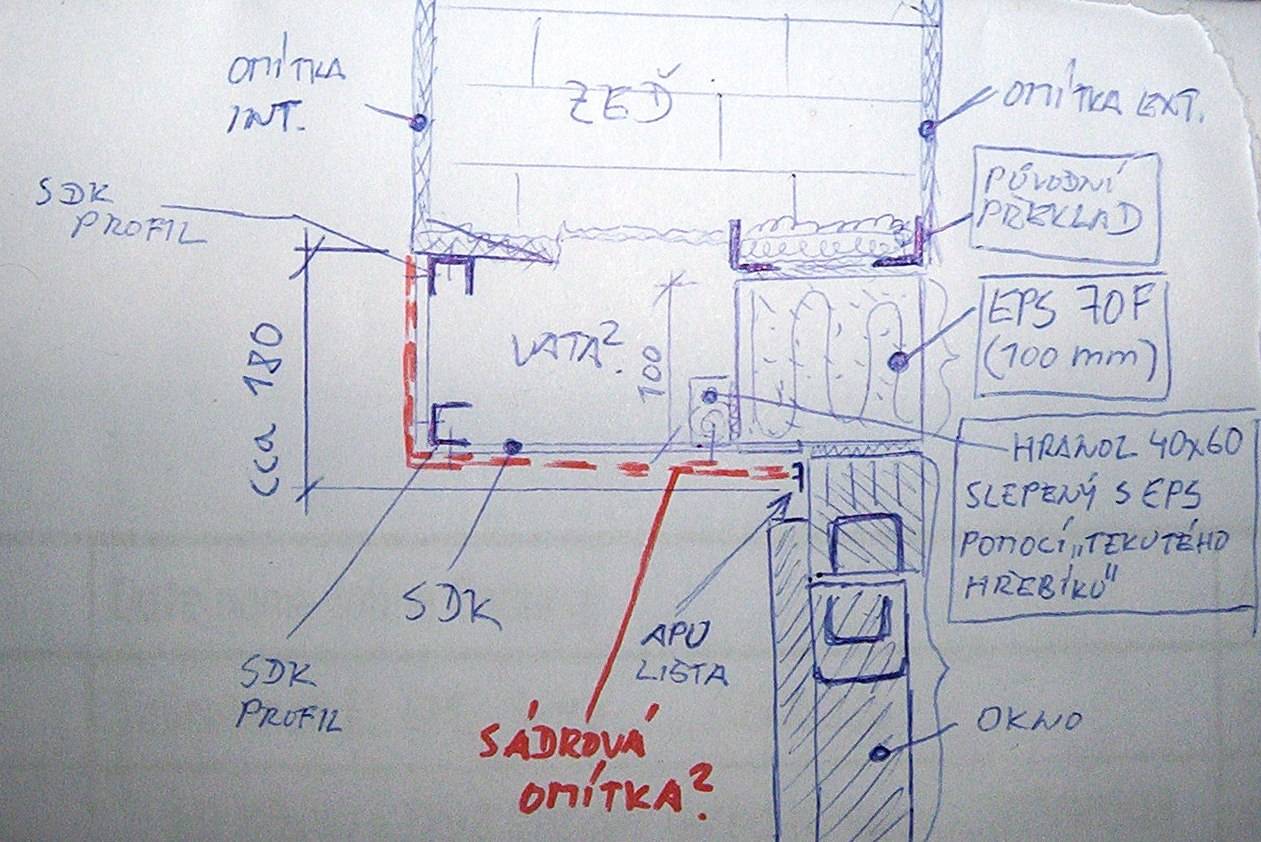 OMÍTKA
INT.
ZEĎ
OMÍTKA EXT.
SDK
PROFIL
PŮVODNÍ
PŘEKLAD
cca 180
VATA?
100
EPS 70F
(100 mm)
HRANOL 40x60
SLEPENÝ S EPS
POMOCÍ „TEKUTÉHO
HŘEBÍKU"
SDK
APU
LIŠTA
SDK
PROFIL
SÁDROVÁ
OMÍTKA?
OKNO